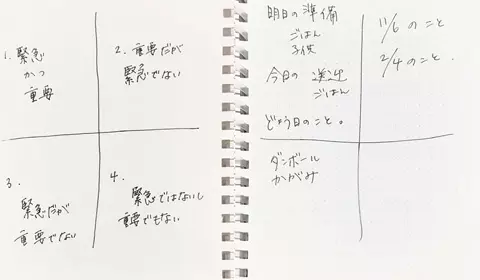 1. 緊急
かつ
重要
2. 重要だが
緊急でない
3.
緊急だが
重要でない
4.
緊急ではないし
重要でもない
明日の準備
ごはん
子供
今日の
ごはん
どよう日のこと。
11/6 のこと
2/4 のこと.
ダンボール
かがみ